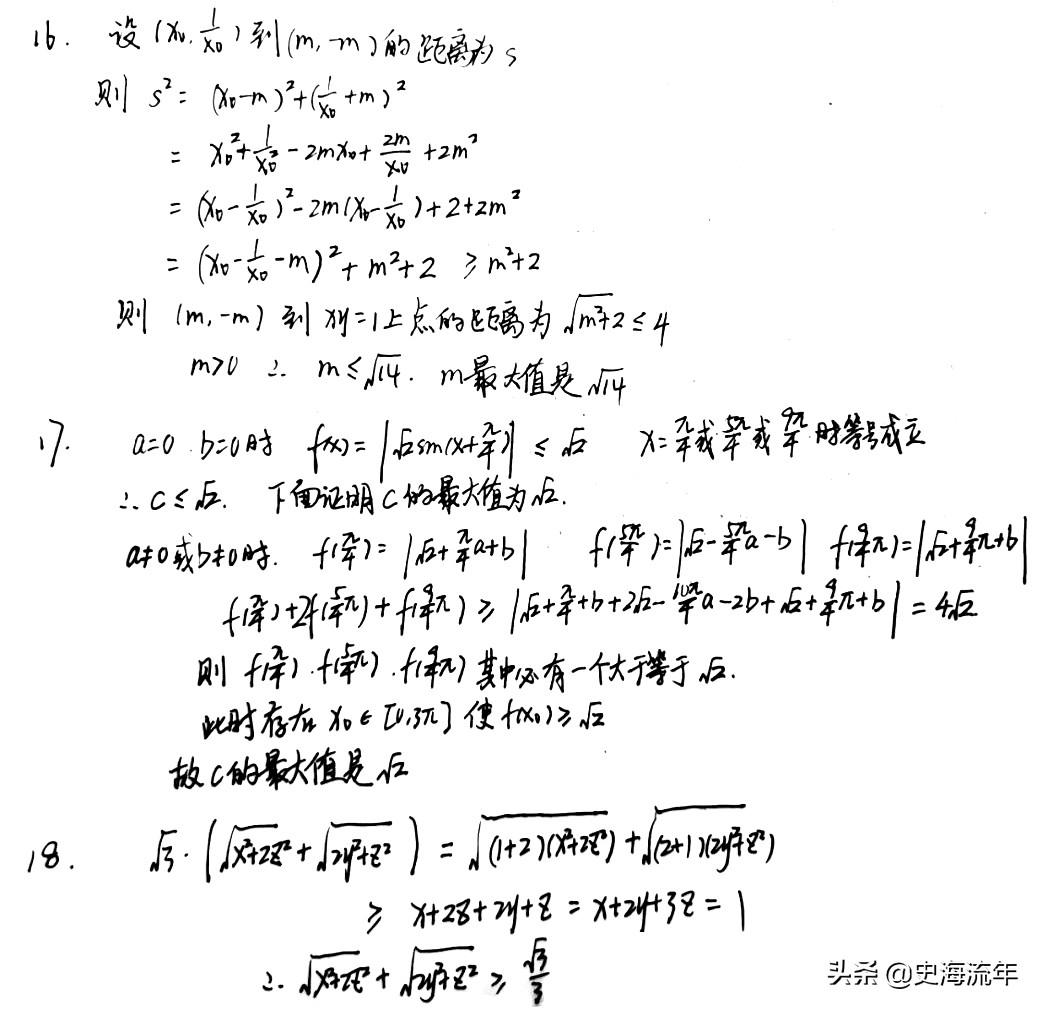 16. 设 (x₀, 1/x₀) 到 (m, -m) 的距离为 s
则 s² = (x₀-m)² + (1/x₀+m)²
= x₀² + 1/x₀² - 2mx₀ + 2m/x₀ + 2m²
= (x₀ - 1/x₀)² - 2m(x₀ - 1/x₀) + 2 + 2m²
= (x₀ - 1/x₀ - m)² + m² + 2 ≥ m² + 2
则 (m, -m) 到 xy=1上点的距离为 √(m²+2) ≤ 4
m>0 ∴ m ≤ √14. m最大值是 √14
17. a=0 . b=0时 f(x) = |√2sin(x+π/4)| ≤ √2 x=π/4或5π/4或9π/4时等号成立
∴ c ≤ √2. 下面证明c的最大值为√2.
a≠0或b≠0时. f(π/4) = |√2+π/4a+b| f(5π/4) = |√2-5π/4a-b| f(9/4π) = |√2+9/4π+b|
f(π/4)+2f(5/4π)+f(9/4π) ≥ |√2+π/4+b+2√2-10π/4a-2b+√2+9/4π+b| = 4√2
则 f(π/4) . f(5/4π) . f(9/4π) 其中必有一个大于等于√2.
此时存在 x₀∈[0,3π] 使 f(x₀) ≥ √2
故c的最大值是√2
18. √3·(√(x²+2z²) + √(2y²+z²)) = √((1+2)(x²+2z²)) + √((2+1)(2y²+z²))
≥ x+2z+2y+z = x+2y+3z = 1
∴ √(x²+2z²) + √(2y²+z²) ≥ √3/3
头条 @史海流年